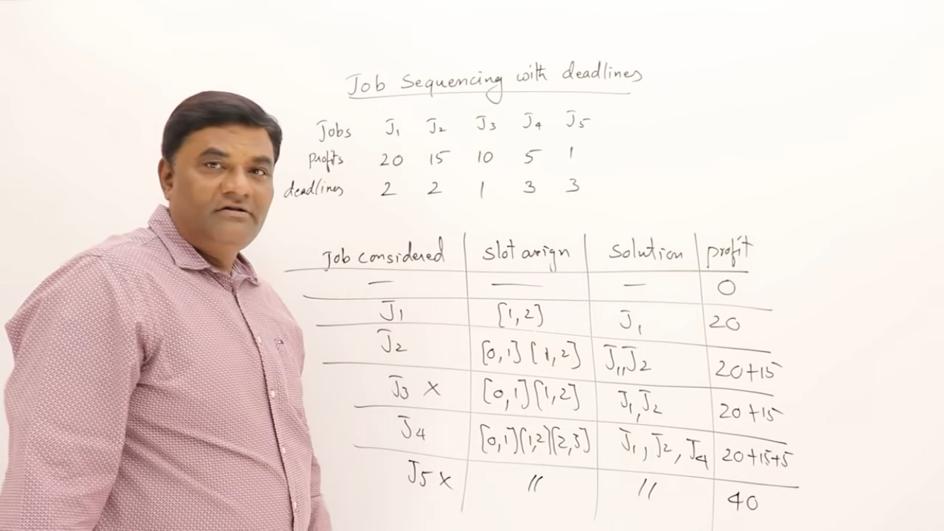 Job Sequencing with deadlines
Jobs J1 J2 J3 J4 J5
profits 20 15 10 5 1
deadlines 2 2 1 3 3
Job considered slot assign solution profit
— — — 0
J1 [1,2] J1 20
J2 [0,1] [1,2] J1,J2 20+15
J3 × [0,1][1,2] J1,J2 20+15
J4 [0,1][1,2][2,3] J1,J2,J4 20+15+5
J5 × " " 40